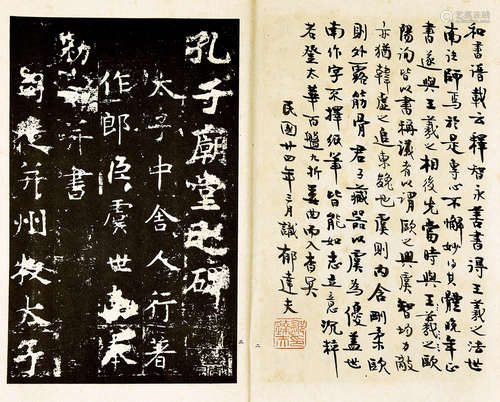 孔子廟堂之碑
太子中舍人行著
作郎臣虞世南奉
勑
并書
司徒并州牧太子
和書譜載云釋智永善書得王羲之法世
南往師焉於是專心不懈妙得其體晚年正
書遂與王羲之相後先當時與王羲之歐
陽詢皆以書稱議者以謂歐之與虞智均力敵
亦猶韓盧之追東魏也虞則內含剛柔歐
則外露筋骨君子藏器以虞為優蓋世
南作字不擇紙筆皆能如志立意沉粹
若登太華百盤九折委曲而入杳冥
民國廿四年三月識郁達夫